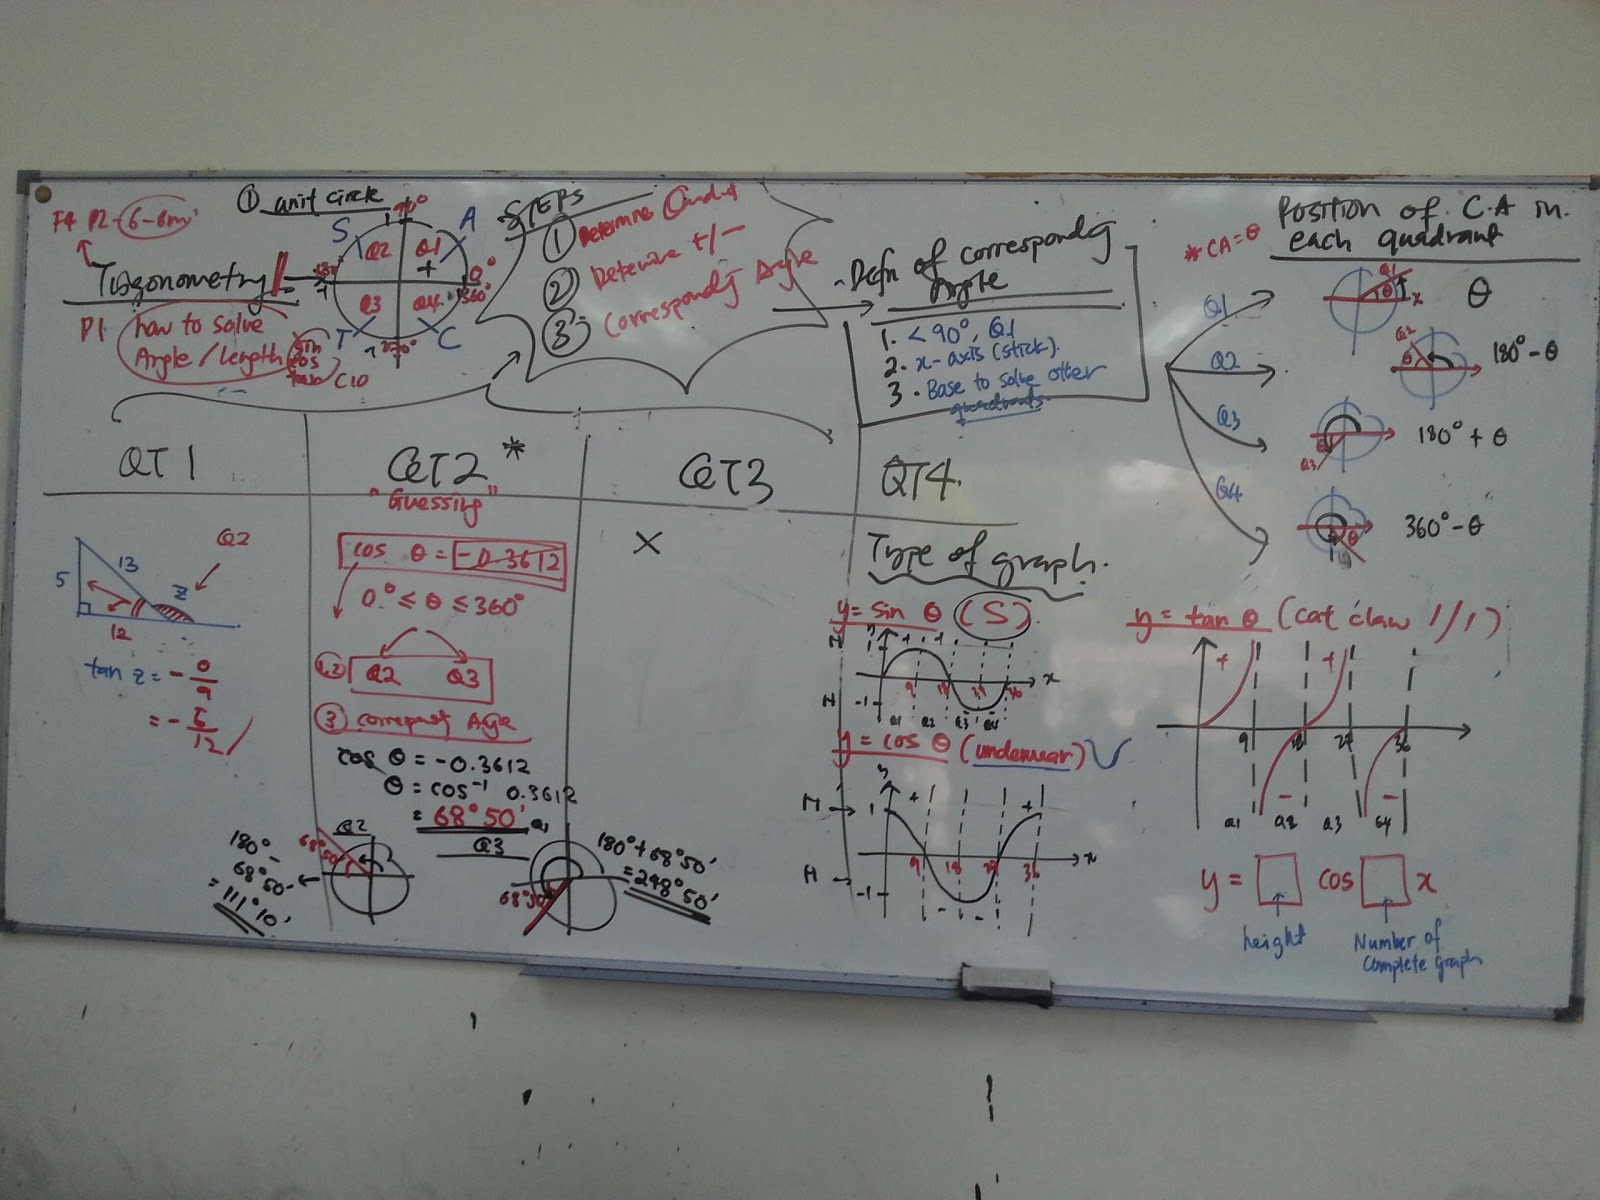 F4 P2-6-8m
Trigonometry
P1
how to solve
Angle/Length
sin
cos
tan
C10
① unit circle
90°
S
A
Q2
Q1
+
0°
360°
Q3
Q4
T
C
270°
STEPS
①
②
Determine +/-
③
Correspondg Angle
-Defn of correspondg
Angle
1. < 90°, Q1
2. x-axis (stick).
3. Base to solve other
quadrants.
Position of C.A in
each quadrant
*CA=θ
Q1
Q1
θ
x
θ
Q2
Q2
θ
180°-θ
Q3
Q3
180°+θ
Q4
θ
360°-θ
QT1
QT2 *
QT3
QT4.
"Guessing"
Q2
13
5
12
Z
tan Z = - o/a
= - 5/12
cos θ = -0.3612
0° ≤ θ ≤ 360°
1,2
Q2 Q3
③
Angle
cos θ = -0.3612
θ = cos⁻¹ 0.3612
= 68°50'
Q1
Q2
180°-
68°50'
= 111°10'
68°50'
Q3
180°+68°50'
= 248°50'
x
Type of graph.
y = sin θ (S).
1
+ +
x
-1
9 18 27 36
Q1 Q2 Q3 Q4
y = cos θ (underwear)
1
+ +
x
9 18 27 36
-1
- -
y = tan θ (cat claw 1/1)
+ +
9 18 27 36
- -
Q1 Q2 Q3 Q4
y = cos x
height
Number of
complete graph